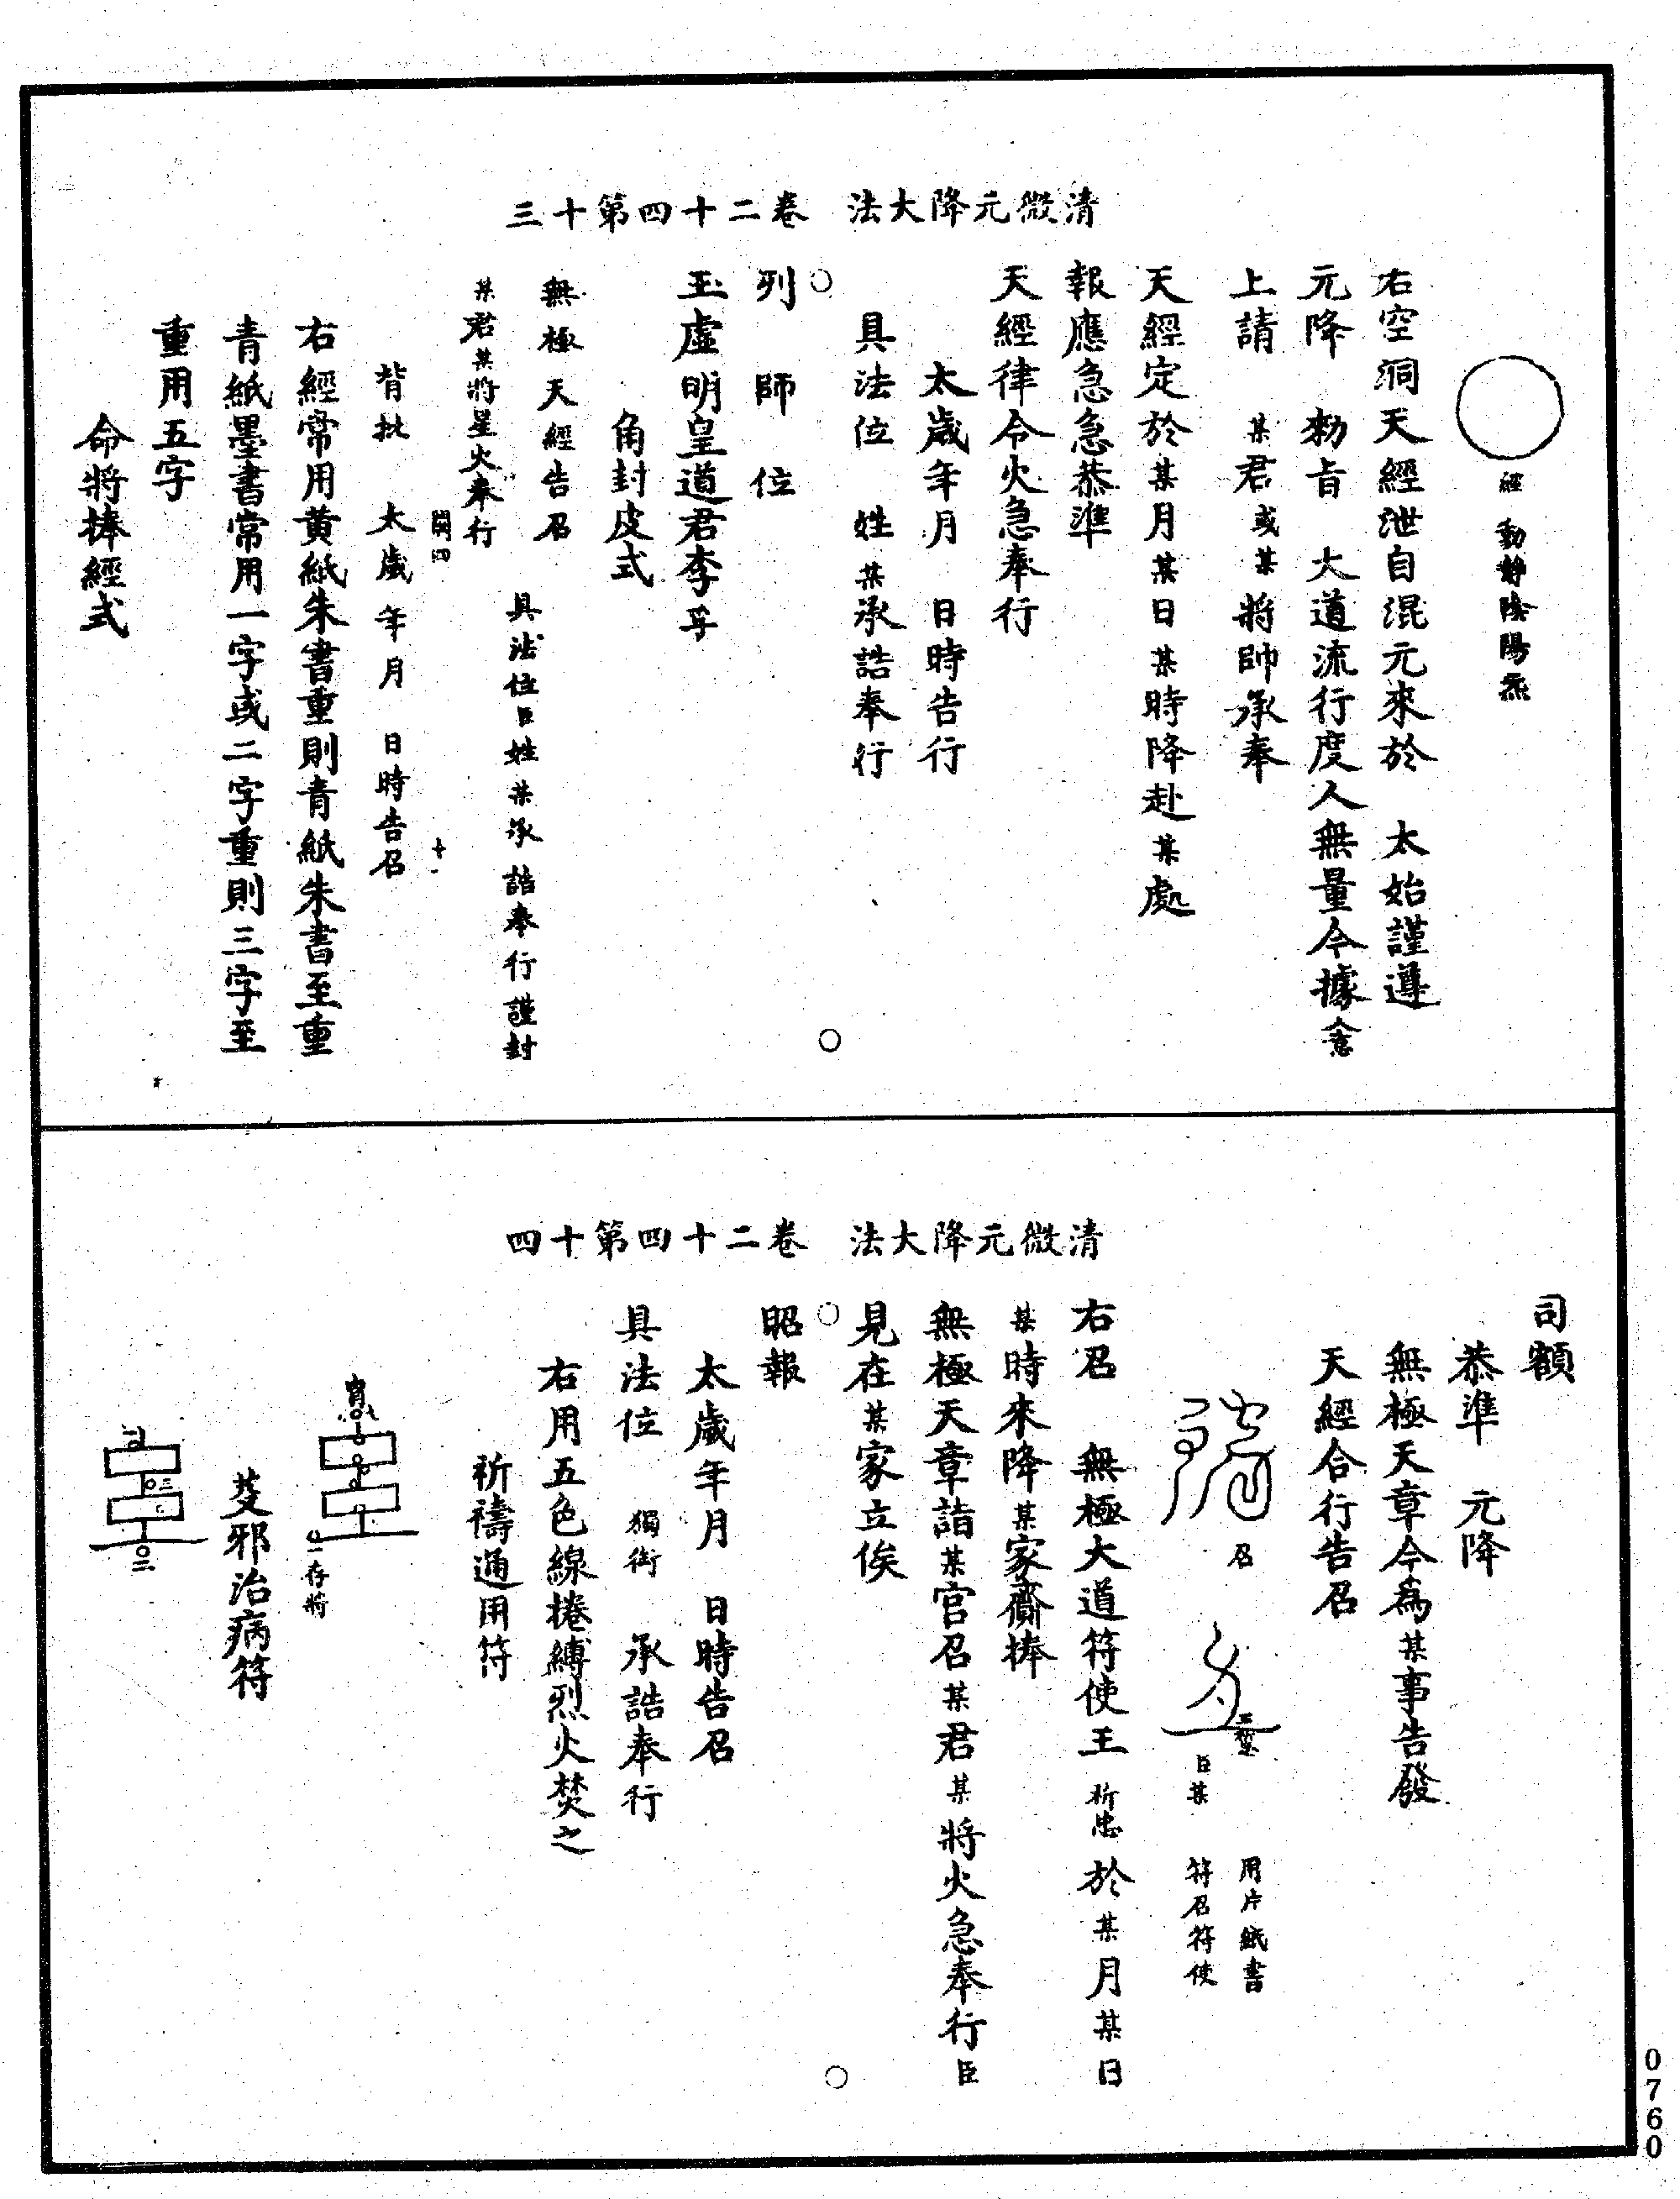 清微元降大法　卷二十四第十三
經　動靜陰陽炁
右空洞天經泄自混元來於　太始謹遵
元降　勑旨　大道流行度人無量今據入意
上請　某君或某將帥承奉
天經定於某月某日某時降赴某處
報應急急恭準
天經律令火急奉行
太歲年月　日時告行
具法位　姓某承誥奉行
列　師　位
玉虛明皇道君李孚
角封皮式
無極天經告召
具法位臣姓某承誥奉行謹封
某君某將星火奉行
開四　十
背批　太歲年月　日時告召
右經常用黃紙朱書重則青紙朱書至重
青紙墨書常用一字或二字重則三字至
重用五字
命將捧經式
清微元降大法　卷二十四第十四
司額
恭準　元降
無極天章今為某事告發
天經合行告召
召　臣某　用片紙書
符召符使
右召　無極大道符使王　祈忠　於某月某日
某時來降某家齎捧
無極天章詣某官召某君某將火急奉行臣
見在某家立俟
昭報
太歲年月　日時告召
具法位　獨銜　承誥奉行
右用五色線捲縛烈火焚之
祈禱通用符
存將
芟邪治病符
0760